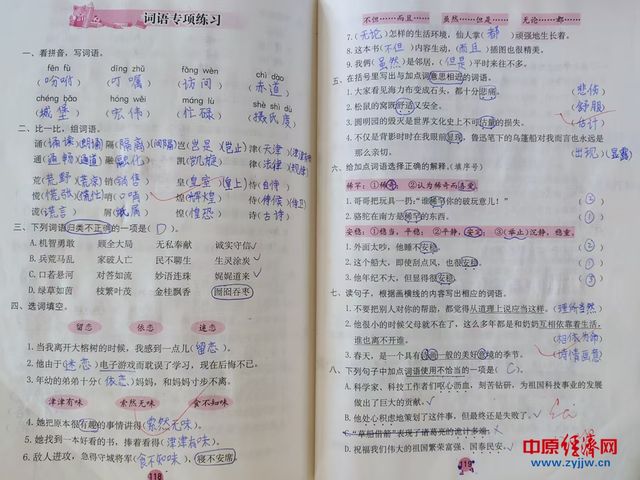 词语专项练习
一、看拼音，写词语。
fēn fù dīng zhǔ fǎng wèn chì dào
(吩咐) (叮嘱) (访问) (赤道)
chéng bǎo hóng wěi máng lù shè shì dù
(城堡) (宏伟) (忙碌) (摄氏度)
二、比一比，组词语。
三、下列词语归类不正确的一项是( D )。
A.机智勇敢 顾全大局 无私奉献 诚实守信
B.兵荒马乱 家破人亡 民不聊生 生灵涂炭
C.口若悬河 对答如流 妙语连珠 娓娓道来
D.绿草如茵 枝繁叶茂 金桂飘香 囫囵吞枣
四、选词填空。
留恋 依恋 迷恋
1.当我离开大榕树的时候，我感到一点儿(留恋)。
2.他由于(迷恋)电子游戏而耽误了学习，现在后悔不已。
3.年幼的弟弟十分(依恋)妈妈，和妈妈寸步不离。
津津有味 索然无味 食不知味
4.她把原本很有趣的事情讲得(索然无味)。
5.我找到一本好看的书，捧着看得(津津有味)。
6.敌人进攻，急得守城将军(食不知味)，寝不安席。
118
不但……而且 虽然……但是 无论……都
7.(无论)怎样的生活环境，仙人掌(都)顽强地生长着。
8.这本书(不但)内容生动，(而且)插图也很精美。
9.我俩(虽然)是邻居，(但是)平时来往不多。
五、在括号里写出与加点词语意思相近的词语。
1.大家看见海力布变成石头，都十分悲痛。 (悲伤)
2.松鼠的窝既舒适又安全。 (舒服)
3.圆明园的毁灭是世界文化史上不可估量的损失。 (估计)
4.不仅是背影时时在我眼前显现，鲁迅笔下的乌篷船对我而言也永远是
那么亲切。 (出现)
六、给加点词语选择正确的解释。(填序号)
稀罕：①稀奇 ②认为稀奇而喜爱。
1.哥哥把玩具一扔：“谁稀罕你的破玩意儿！” (②)
2.骆驼在南方是稀罕的东西。 (①)
安稳：①稳当，平稳；②平静，安定；③(举止)沉静，稳重。
1.外面太吵，他睡不安稳。 (②)
2.这个船大，即使刮点风，也很安稳。 (①)
3.他年纪不大，但显得很安稳。 (③)
七、读句子，根据画横线的内容写出相应的词语。
1.不要把别人对你的帮助，都觉得从道理上说应当这样。 (理所当然)
2.他很小的时候父母就不在了，这么多年都是和奶奶互相依靠着生活，
谁也离不开谁。 (相依为命)
3.春天，是一个具有诗画一般的美好意境的季节。 (诗情画意)
八、下列句子中加点词语使用不恰当的一项是( C )。
A.科学家、科技工作者们呕心沥血，刻苦钻研，为祖国科技事业的发展
做出了巨大的贡献。
B.他处心积虑地策划了这件事，但最终还是失败了。
C.“草船借箭”表现了诸葛亮的诡计多端。
D.祝福我们伟大的祖国繁荣富强、国泰民安。
119
中原经济网
www.zyjjw.cn